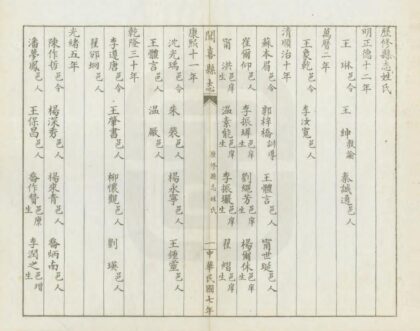 歷修縣志姓氏
明正德十二年
王 琳邑令 王 紳教諭 秦誠通邑人
萬曆二年
王象乾邑令 李汝寬邑人
清順治十年
蘇本眉邑令 郭梓橋訓導 王體言邑人 甯世珽邑人
崔爾仰邑人 李振 邑庠生 劉耀芳邑庠生 楊爾休邑庠生
甯 洪邑庠生 溫素能邑庠生 李振 邑庠生 翟 熠邑庠生
聞喜縣志 歷修縣志姓氏 一 中華民國七年
康熙十一年
沈光瑀邑令 朱 裴邑人 楊永寧邑人 王鍾靈邑人
王體言邑人 溫 嚴邑人
乾隆三十年
李遵唐邑令 王肇書邑人 柳懷觀邑人 劉 瑛邑人
翟 邑人
光緒五年
陳作哲邑令 楊深秀邑人 楊來青邑人 喬炳南邑人
潘夢鳳邑人 王保昌邑人 喬作賢邑廩生 李潤之邑增生